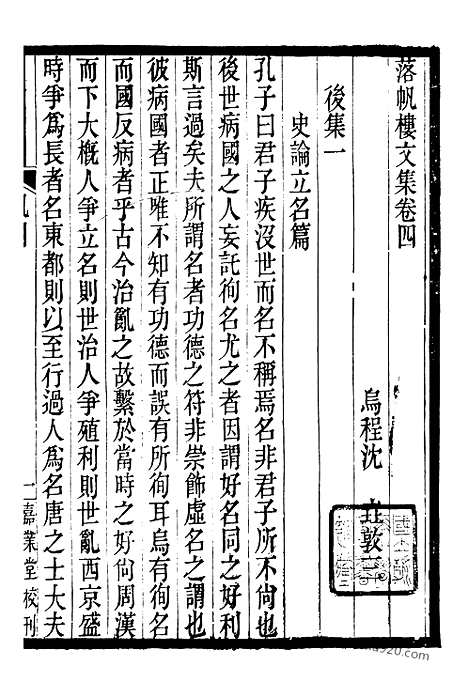 落帆樓文集卷四
烏程沈垚敦三
後集一
史論立名篇
孔子曰君子疾沒世而名不稱焉名非君子所不尙也
後世病國之人妄託徇名尤之者因謂好名同之好利
斯言過矣夫所謂名者功德之符非崇飾虛名之謂也
彼病國者正唯不知有功德而誤有所徇耳烏有徇名
而國反病者乎古今治亂之故繫於當時之好尙周漢
而下大概人爭立名則世治人爭殖利則世亂西京盛
時爭爲長者名東都則以至行過人爲名唐之士大夫
嘉業堂校刊